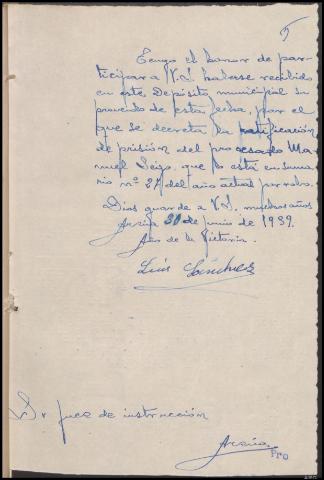 5
Tengo el honor de par-
ticipar a V.S. haberse recibido
en este Depósito municipal su
proveido de esta fecha, por el
que se decreta la ratificación
de prisión del procesado Ma-
nuel Seijo, que lo está en suma-
rio nº 27 del año actual por robo.
Dios guarde a V.S. muchos años
Arzúa 30 de junio de 1939.
Año de la Victoria.
Luis Sánchez
Sr Juez de instrucción
Arzúa